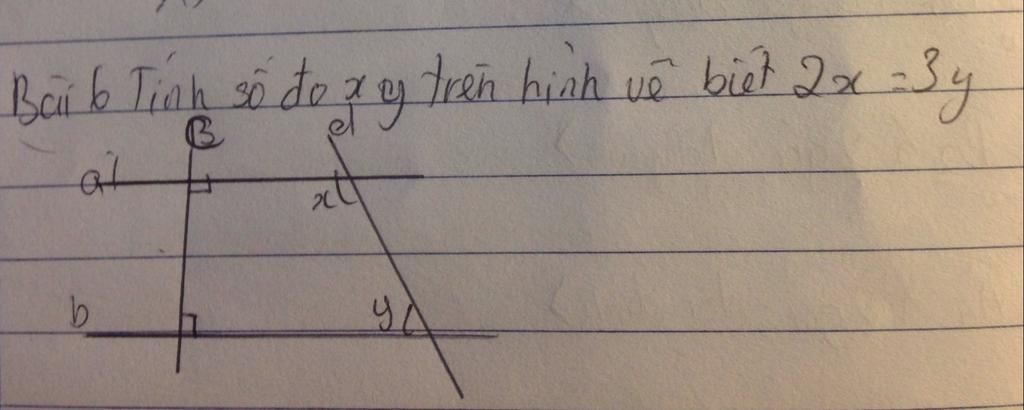 Bài 6 Tính số đo x y trên hình vẽ biết 2x = 3y
B
d
a
x
b
y